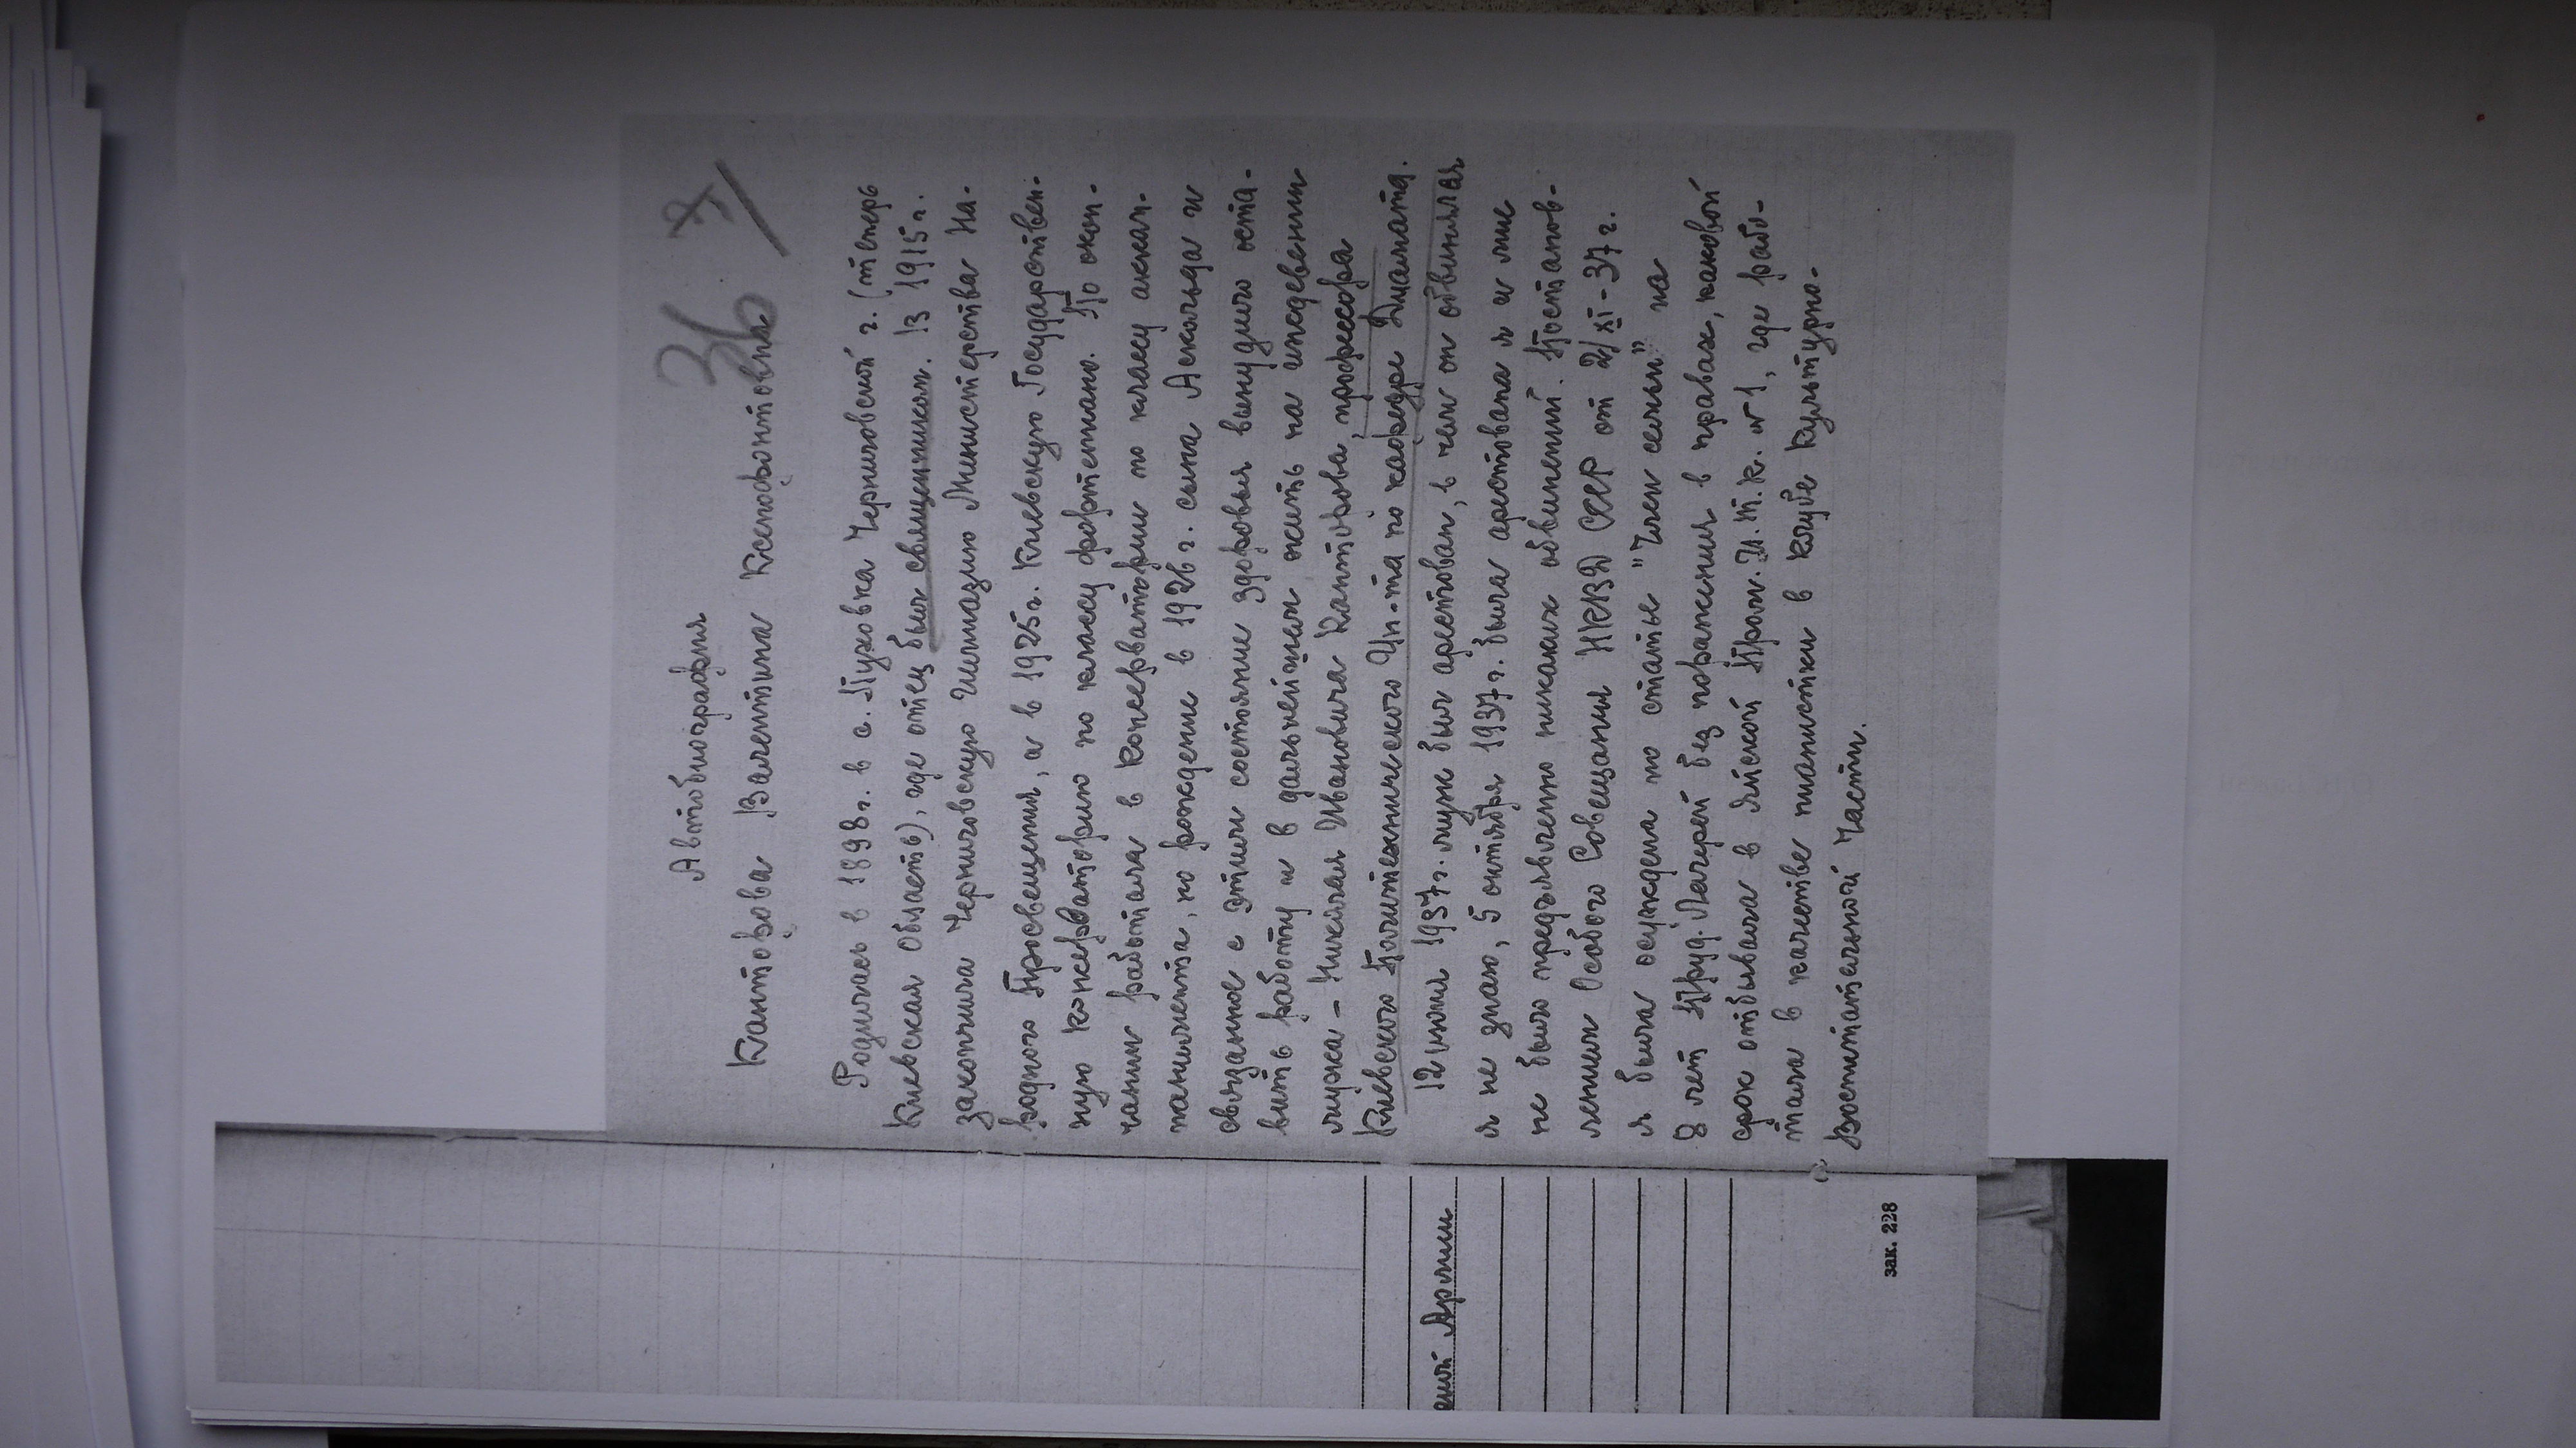 36 7/
Автобиография
Канторова Валентина Ксенофонтовна
Родилась в 1898 г. в с. Пуховка Черниговской г. (теперь
Киевская область), где отец был священником. В 1915 г.
закончила Черниговскую Гимназию Министерства На-
родного Просвещения, а в 1925 г. Киевскую Государствен-
ную консерваторию по классу фортепиано. По окон-
чании работала в консерватории по классу аккам-
панимента, но рождение в 1926 г. сына Аскольда и
связанное с этим состояние здоровья вынудило оста-
вить работу и в дальнейшем жить на иждевении
мужа – Николая Ивановича Канторова, профессора
Киевского Политехнического Ин-та по кафедре Диамата.
12 июня 1937 г. муж был арестован, в чем он обвинялся
я не знаю, 5 октября 1937 г. была арестована я и мне
не было предъявленно никаких обвинений. Постанов-
лением Особого Совещания НКВД СССР от 2/XI-37 г.
я была осуждена по статье "Член семьи" на
8 лет Труд. Лагерей без поражения в правах, каковой
срок отбывала в Яйской Пром. И.Т.К. №1, где рабо-
тала в качестве пианистки в клубе Культурно-
Воспитательной Части.
еной Армии
зак. 228